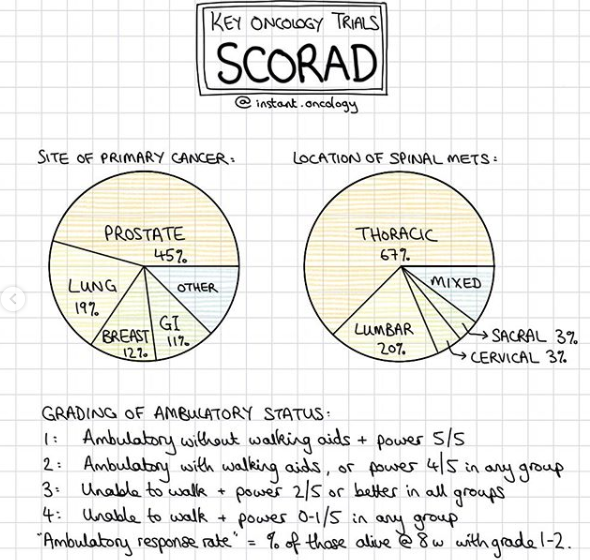 KEY ONCOLOGY TRIALS
SCORAD
@instant.oncology
SITE OF PRIMARY CANCER:
PROSTATE
45%
LUNG
19%
BREAST
12%
GI
11%
OTHER
LOCATION OF SPINAL METS:
THORACIC
67%
MIXED
LUMBAR
20%
SACRAL 3%
CERVICAL 3%
GRADING OF AMBULATORY STATUS:
1: Ambulatory without walking aids + power 5/5
2: Ambulatory with walking aids, or power 4/5 in any group
3: Unable to walk + power 2/5 or better in all groups
4: Unable to walk + power 0-1/5 in any group
"Ambulatory response rate" = % of those alive @ 8w with grade 1-2.